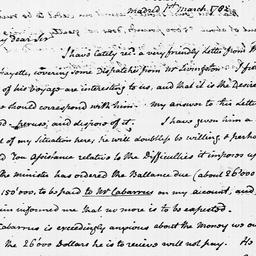 Madrid 1st March 1782
Dear Sir
I have lately recd. a very friendly letter from
Fayette, covering some Dispatches from Mr Livingston
of his Voyage are interesting to us, and that it is the Desire
should correspond with him. my answer to this letter
peruse, and dispose of it. I have given him a
of my Situation here; he will doubtless be willing & perhaps
You assistance relative to the Difficulties it imposes
the minister has ordered the Ballance due (about 26'000
150'000, to be paid to Mr Cabarrus on my account, and
informed me that no more is to be expected.
Cabarrus is exceedingly anxious about the Money we
the 26'000 Dollars he is to recieve will not pay. He